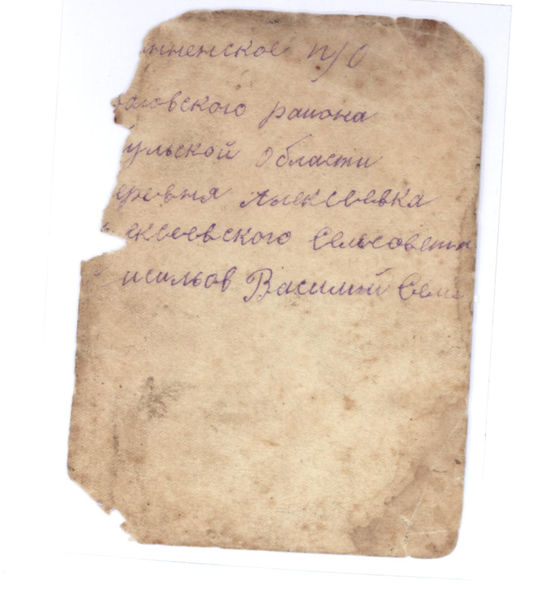 нненское п/о
овского района
ульской области
еревня Алексеевка
ексеевского сельсовета
Василий Сем